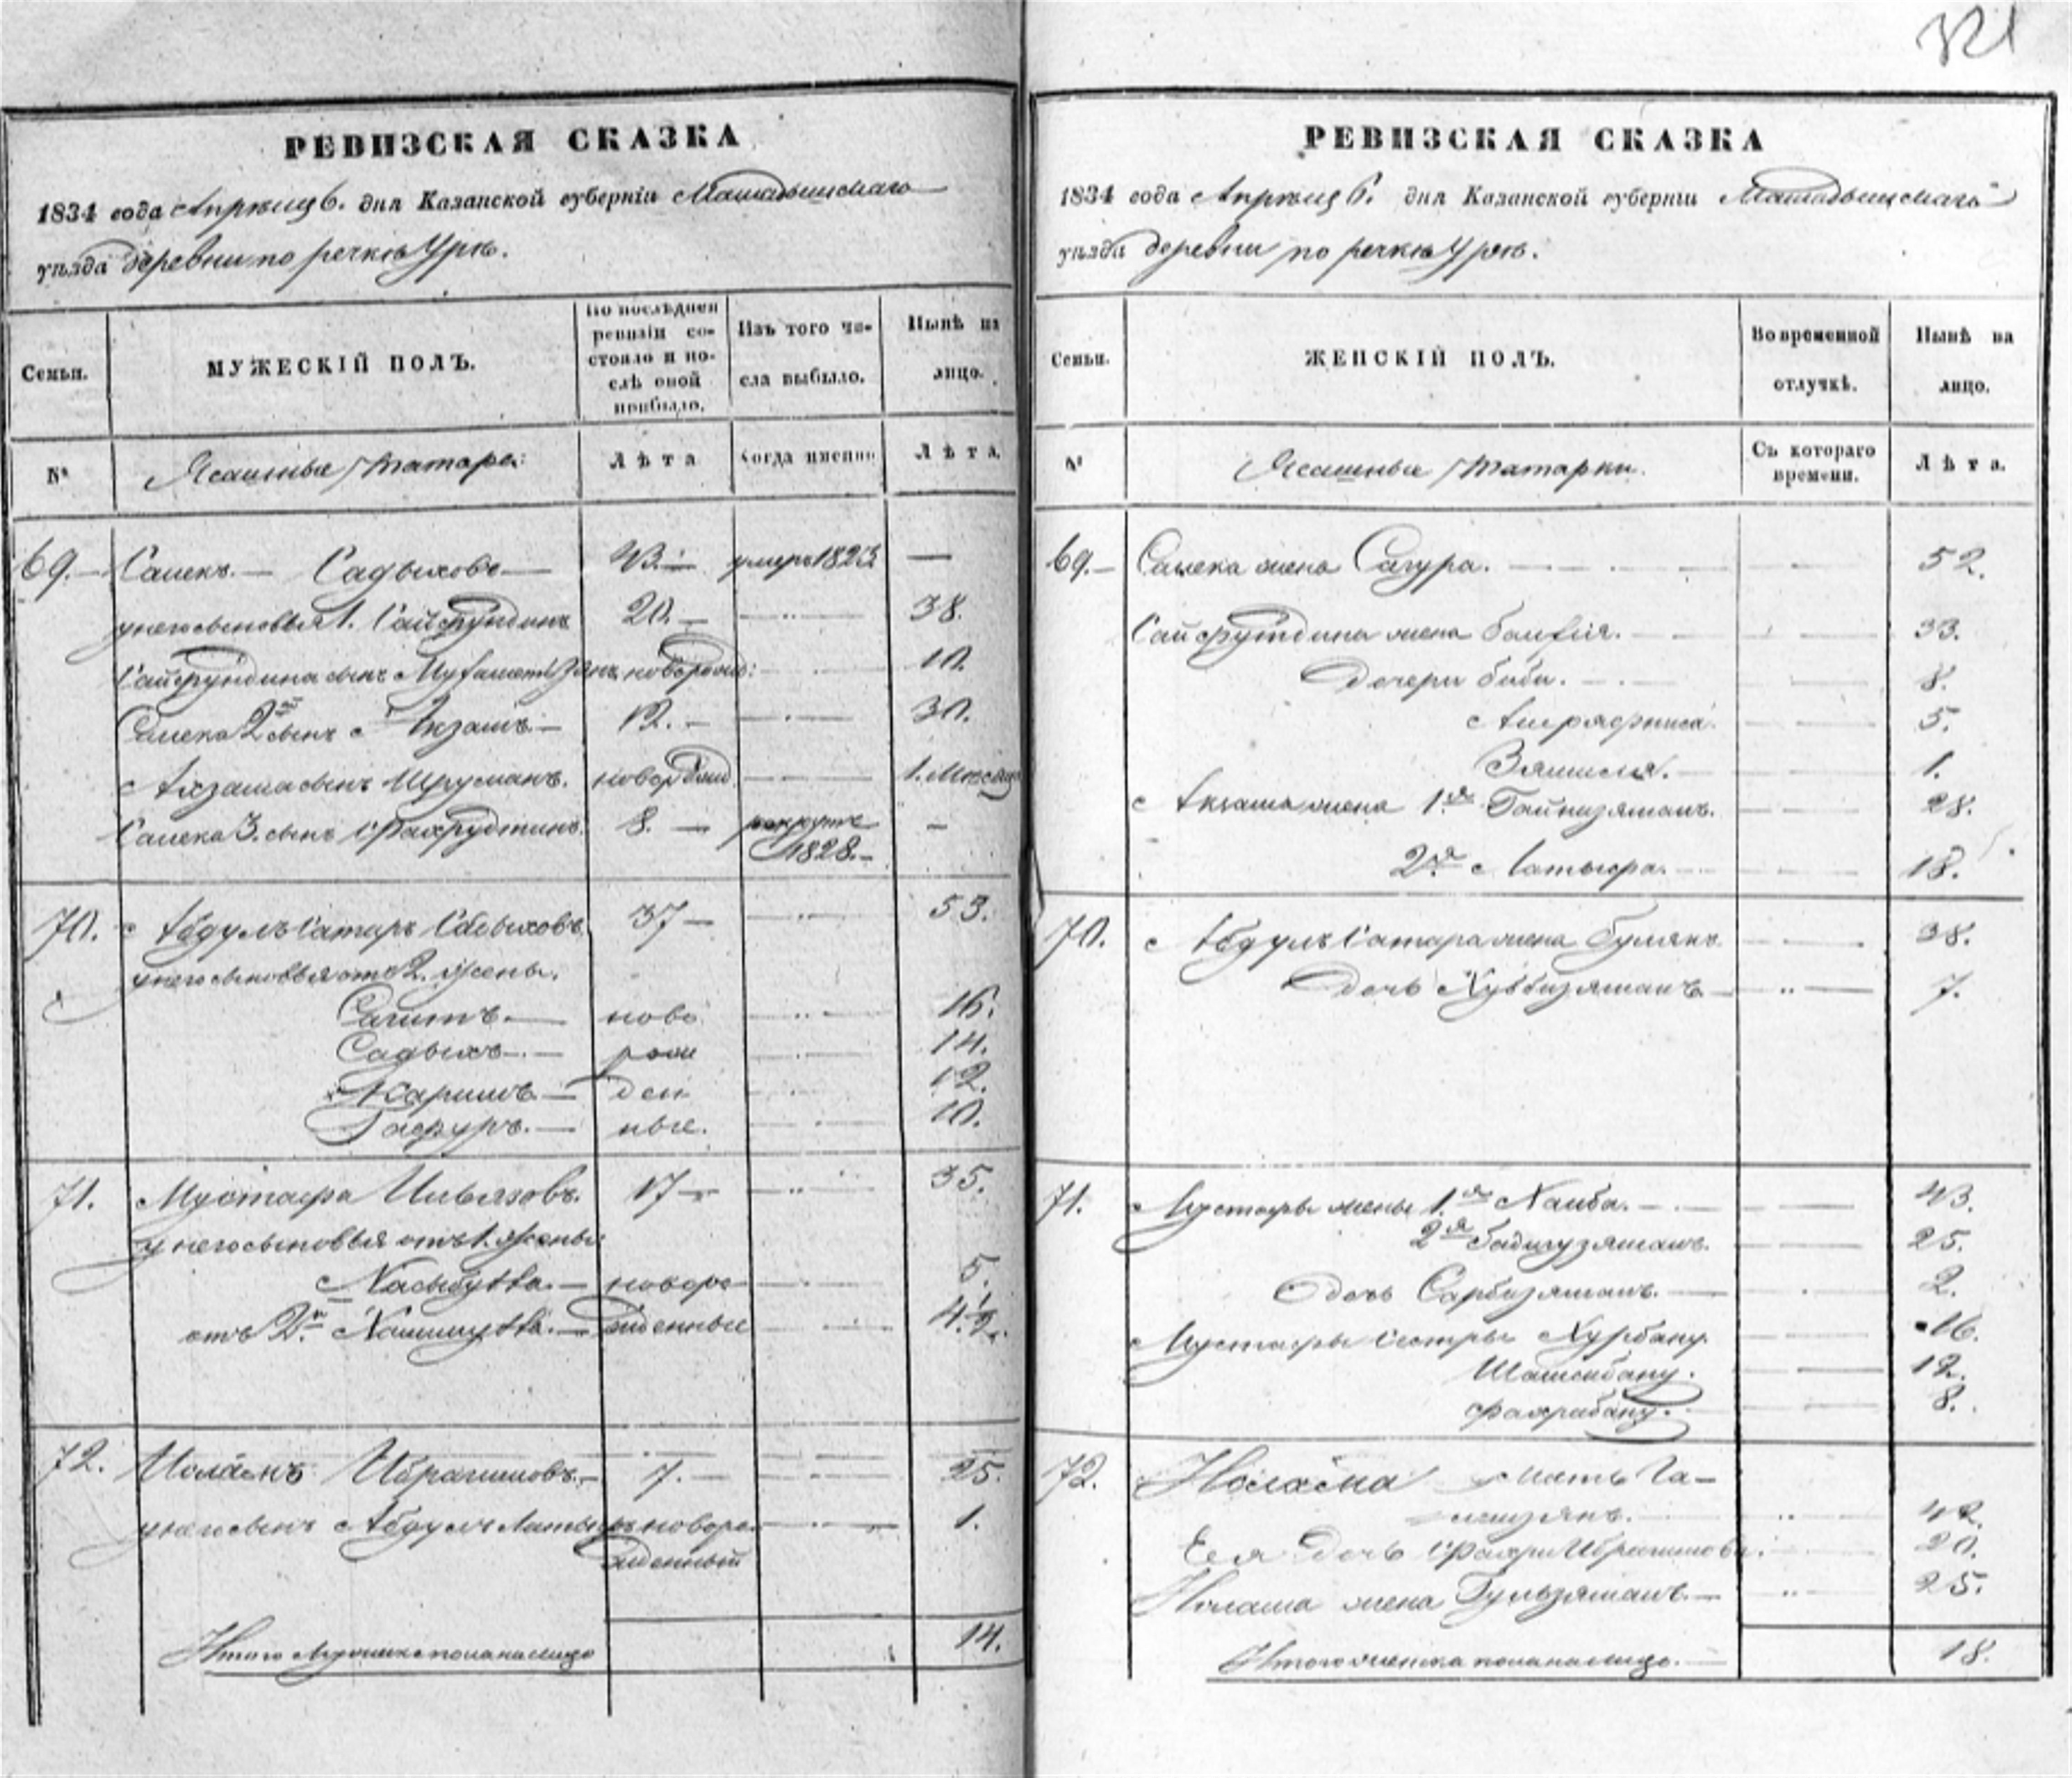 321
РЕВИЗСКАЯ СКАЗКА
1834 года Апрѣля 6. дня Казанской губерніи Мамадышскаго
уѣзда деревни по речкѣ Урѣ.
Семьи.
МУЖЕСКІЙ ПОЛЪ.
По послѣдней ревизіи состояло и послѣ оной прибыло.
Изъ того числа выбыло.
Нынѣ на лицо.
№
Ясашные татара:
Лѣта
Когда имянно
Лѣта.
69. Салекъ. Садыковъ 43. умеръ 1823 —
у него сыновья 1. Сайфундинъ 20. 38.
Сайфундина сынъ Мухаметзянъ новорожд: 10.
Салека 2й сынъ Акзамъ 12. 30.
Акзама сынъ новорожд 1. Месяцъ
Салека 3. сынъ Фахрудтинъ. 8. рекрутъ 1828. —
70. Абдулъ Сатаръ Садыковъ 37 53.
у него сыновья отъ 2. жены.
Сагитъ. ново 16.
Садыкъ. рож 14.
Каримъ ден 12.
Гафуръ. ные. 10.
71. Мустафа Ильясовъ. 17 35.
у него сыновья отъ 1. жены
Насыбулла. новоро 5.
отъ 2й жденные 4 1/2.
72. Ибрагимовъ. 7. 25.
у него сынъ Абдулъ Латыфъ новоро 1.
жденный
Итого мужеска пола на лицо 14.
РЕВИЗСКАЯ СКАЗКА
1834 года Апрѣля 6. дня Казанской губерніи Мамадышскаго
уѣзда деревни по речкѣ Урѣ.
Семьи.
ЖЕНСКІЙ ПОЛЪ.
Во временной отлучкѣ.
Нынѣ на лицо.
№
Ясашные татарки.
Съ котораго времени.
Лѣта.
69. Салека жена Сагура. 52.
Сайфутдина жена 33.
Дочери биби. 8.
Ашрафниса. 5.
1.
жена 1я Гайнизяманъ. 28.
2я Латыфа. 18.
70. Абдулъ Сатара жена Гулянъ 38.
Дочь 7.
71. Мустафы жены 1я Наиба. 43.
2я Бадигузяманъ. 25.
Дочь Сарбизяманъ. 2.
Мустафы сестры Хурбану. 16.
Шамсибану. 12.
Фахрибану. 8.
72. мать Га-
42.
Ея дочь Фахри Ибрагимова. 20.
жена Гульзяманъ. 25.
Итого женска пола на лицо. 18.